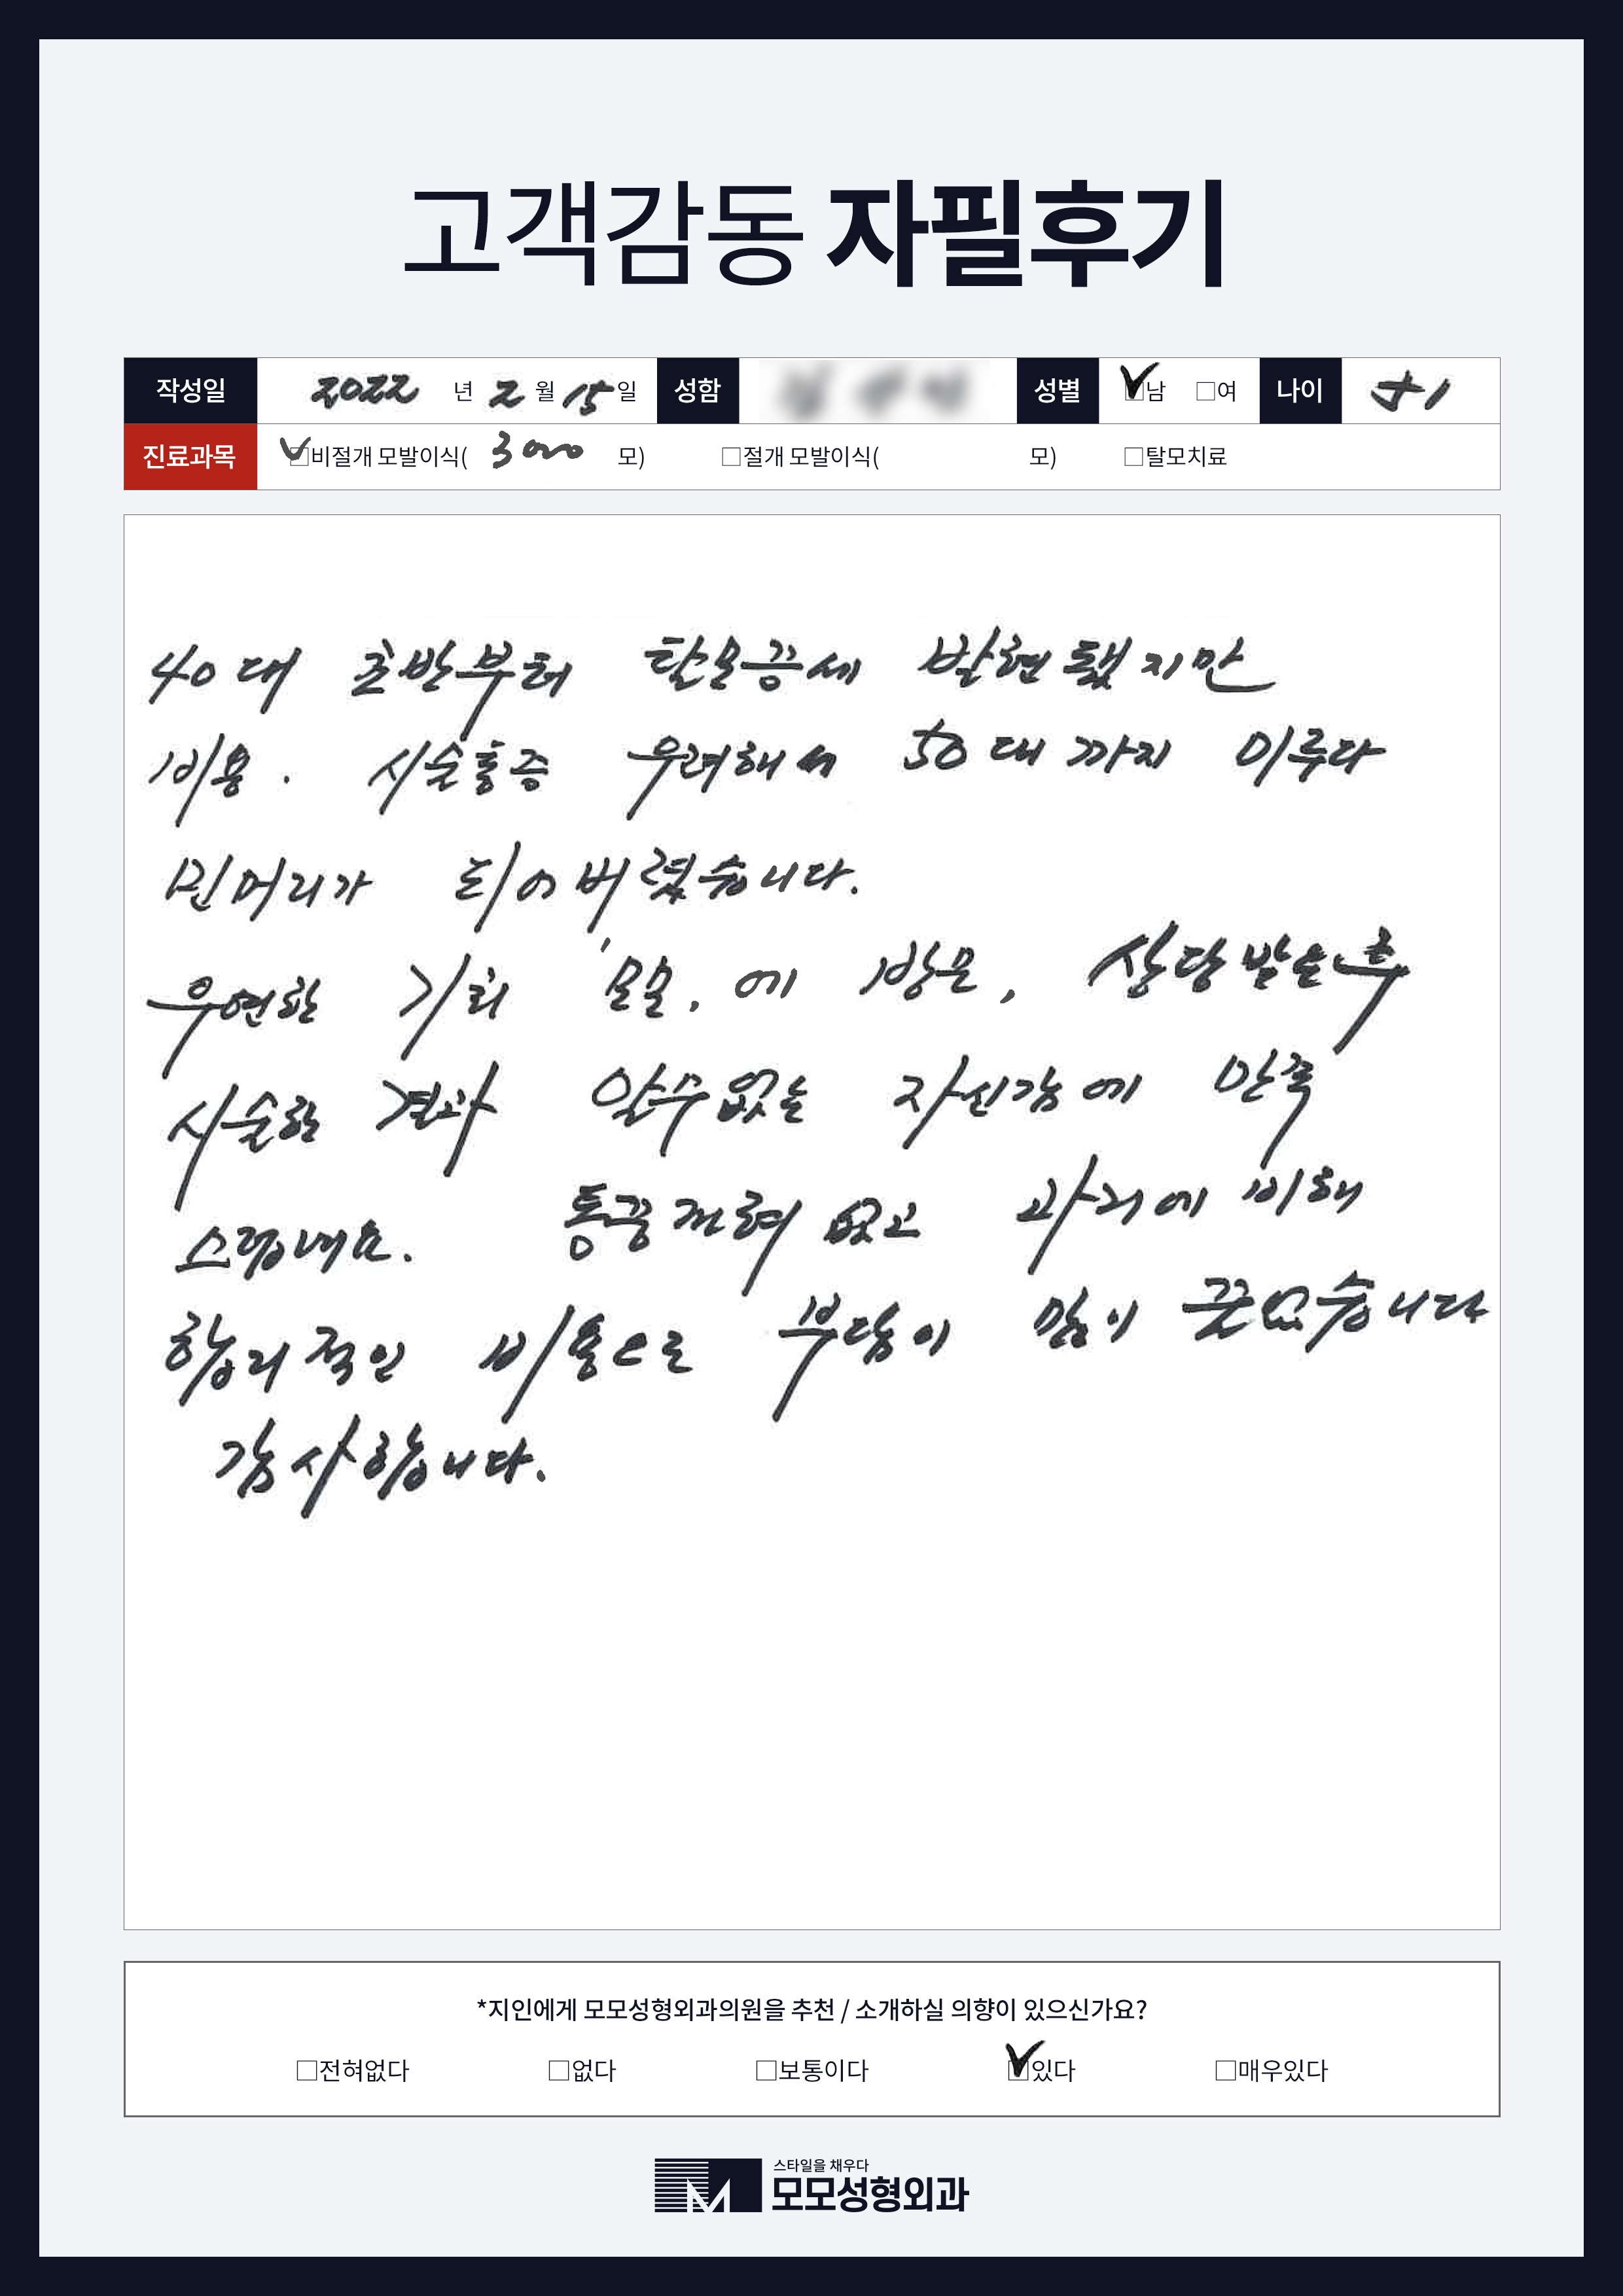 고객감동 자필후기
작성일 2022 년 2 월 15 일 성함 성별 ☑남 □여 나이 51
진료과목 ☑비절개 모발이식( 3000 모) □절개 모발이식( 모) □탈모치료
40대 초반부터 탈모끔세 발현됐지만
비용. 시술통증 우려해서 50대까지 미루다
민머리가 되어버렸습니다.
우연한 기회 '모모, 에 방문, 상담받은후
시술한 결과 알수없는 자신감에 만족
스럽네요. 통증전혀 없고 과거에 비해
합리적인 비용으로 부담이 많이
감사합니다.
*지인에게 모모성형외과의원을 추천 / 소개하실 의향이 있으신가요?
□전혀없다 □없다 □보통이다 ☑있다 □매우있다
스타일을 채우다
모모성형외과